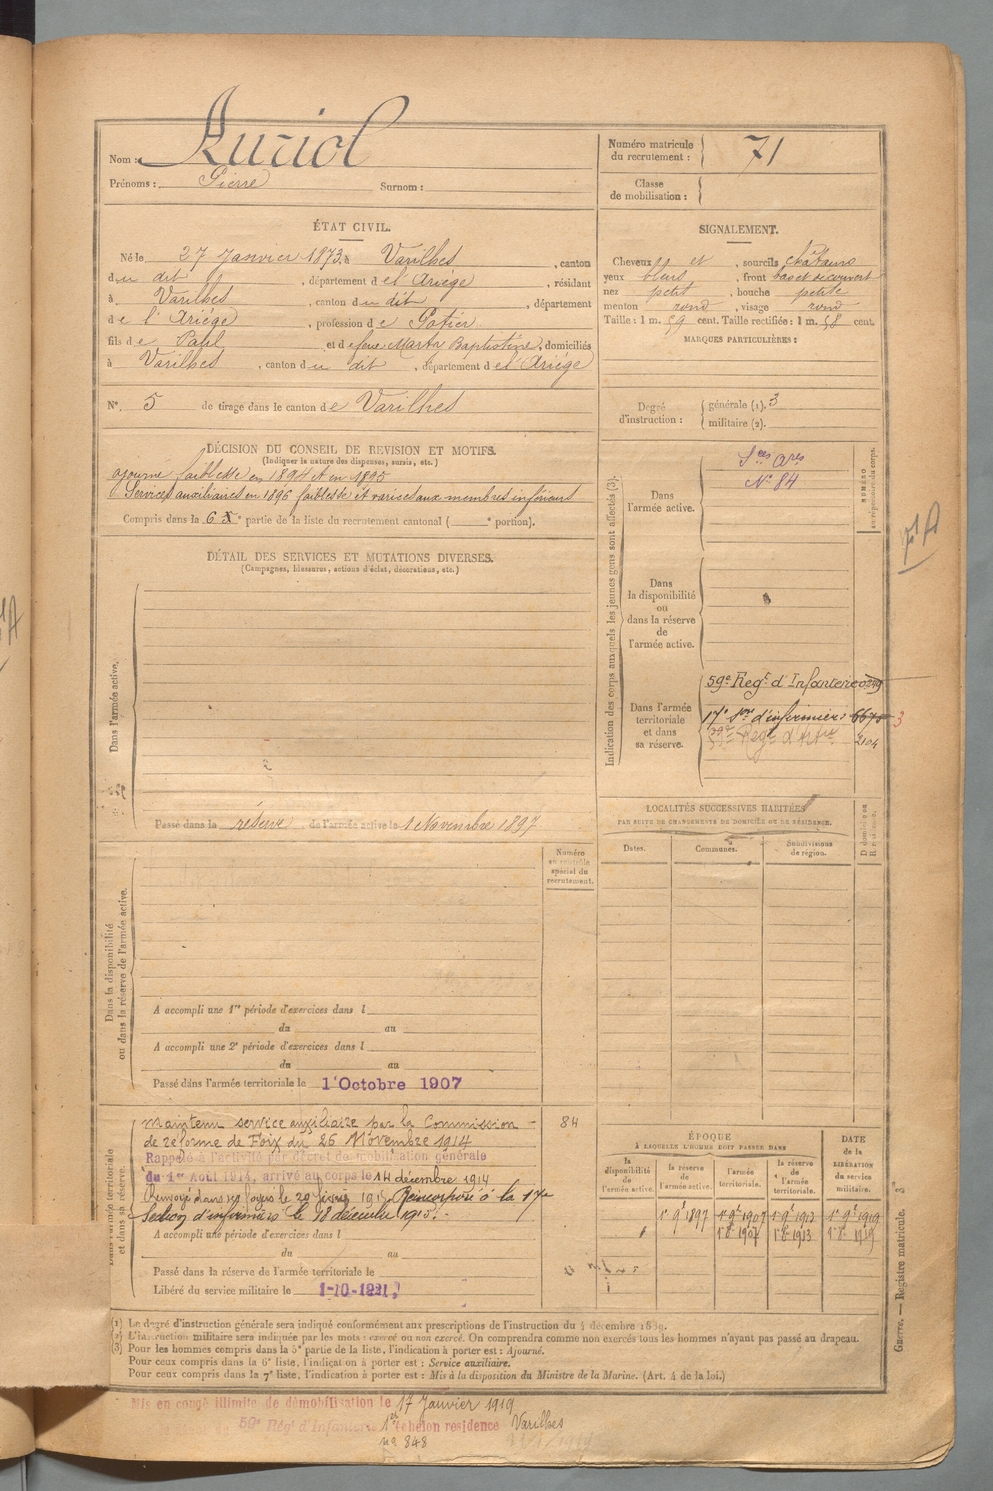 Nom : Auriol
Prénoms : Pierre Surnom :
Numéro matricule du recrutement : 71
Classe de mobilisation :
ÉTAT CIVIL.
Né le 27 Janvier 1873, à Varilhes, canton
du dit, département de l'Ariège, résidant
à Varilhes, canton du dit, département
de l'Ariège, profession de Potier
fils de Paul et de feue Marty Baptistine, domiciliés
à Varilhes, canton du dit, département de l'Ariège
N° 5 de tirage dans le canton de Varilhes
SIGNALEMENT.
Cheveux et, sourcils châtains
yeux bleus, front bas et découvert
nez petit, bouche petite
menton rond, visage rond
Taille : 1 m. 59 cent. Taille rectifiée : 1 m. 58 cent.
MARQUES PARTICULIÈRES :
Degré d'instruction : générale (1). 3
militaire (2).
DÉCISION DU CONSEIL DE REVISION ET MOTIFS.
(Indiquer la nature des dispenses, sursis, etc.)
ajourné faiblesse en 1894 et en 1895
Services auxiliaires en 1896 faiblesse et varices aux membres inférieurs
Compris dans la 6e partie de la liste du recrutement cantonal ( e portion).
DÉTAIL DES SERVICES ET MUTATIONS DIVERSES.
(Campagnes, blessures, actions d'éclat, décorations, etc.)
Dans l'armée active.
Passé dans la réserve de l'armée active le 1 Novembre 1897
Indication des corps auxquels les jeunes gens sont affectés (3).
NUMÉRO au répertoire du corps.
Dans l'armée active.
Sces Ares
N° 84
71 A
Dans la disponibilité ou dans la réserve de l'armée active.
Dans l'armée territoriale et dans sa réserve.
59e Regt d'Infanterie
17e Son d'infirmiers 6678 3
Regt d'Artie 2104
LOCALITÉS SUCCESSIVES HABITÉES
PAR SUITE DE CHANGEMENTS DE DOMICILE OU DE RÉSIDENCE.
Dates. Communes. Subdivisions de région. D domicile ou R résidence.
Numéro au contrôle spécial du recrutement.
Dans la disponibilité ou dans la réserve de l'armée active.
A accompli une 1re période d'exercices dans l
du au
A accompli une 2e période d'exercices dans l
du au
Passé dans l'armée territoriale le 1 Octobre 1907
Dans l'armée territoriale et dans sa réserve.
maintenu service auxiliaire par la Commission 84
de réforme de Foix du 26 Novembre 1914
Rappelé à l'activité par décret de mobilisation générale
du 1er Août 1914, arrivé au corps le 14 décembre 1914
Renvoyé dans ses foyers le 20 1915 Réincorporé à la 17e
Section d'infirmiers le 18 décembre 1915.
A accompli une période d'exercices dans l
du au
Passé dans la réserve de l'armée territoriale le
Libéré du service militaire le 1-10-1921
ÉPOQUE
À LAQUELLE L'HOMME DOIT PASSER DANS
la disponibilité de l'armée active. la réserve de l'armée active. l'armée territoriale. la réserve de l'armée territoriale. DATE de la LIBÉRATION du service militaire.
1er 9bre 1897 1er 9bre 1907 1er 9bre 1913 1er 9bre 1919
1er 8bre 1907 1er 8bre 1913 1er 8bre 1919
Guerre. — Registre matricule.
(1) Le degré d'instruction générale sera indiqué conformément aux prescriptions de l'instruction du 4 décembre 1889.
(2) L'instruction militaire sera indiquée par les mots : exercé ou non exercé. On comprendra comme non exercés tous les hommes n'ayant pas passé au drapeau.
(3) Pour les hommes compris dans la 5e partie de la liste, l'indication à porter est : Ajourné.
Pour ceux compris dans la 6e liste, l'indication à porter est : Service auxiliaire.
Pour ceux compris dans la 7e liste, l'indication à porter est : Mis à la disposition du Ministre de la Marine. (Art. 4 de la loi.)
Mis en congé illimité de démobilisation le 17 Janvier 1919
59e Rég d'Infanterie 1er échelon résidence Varilhes
no 848